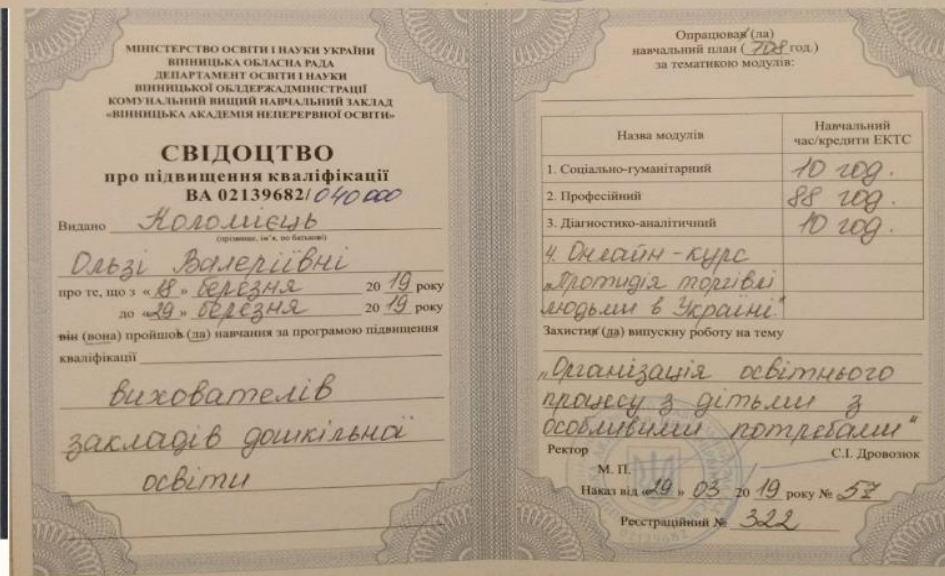 МІНІСТЕРСТВО ОСВІТИ І НАУКИ УКРАЇНИ
ВІННИЦЬКА ОБЛАСНА РАДА
ДЕПАРТАМЕНТ ОСВІТИ І НАУКИ
ВІННИЦЬКОЇ ОБЛДЕРЖАДМІНІСТРАЦІЇ
КОМУНАЛЬНИЙ ВИЩИЙ НАВЧАЛЬНИЙ ЗАКЛАД
«ВІННИЦЬКА АКАДЕМІЯ НЕПЕРЕРВНОЇ ОСВІТИ»
СВІДОЦТВО
про підвищення кваліфікації
ВА 02139682/040000
Видано Коломієць
(прізвище, ім'я, по батькові)
Ользі Валеріївні
про те, що з «18» березня 2019 року
до «29» березня 2019 року
він (вона) пройшов (ла) навчання за програмою підвищення
кваліфікації
вихователів
закладів дошкільної
освіти
Опрацював (ла)
навчальний план (108 год.)
за тематикою модулів:
Назва модулів
Навчальний
час/кредити ЕКТС
1. Соціально-гуманітарний 10 год.
2. Професійний 88 год.
3. Діагностико-аналітичний 10 год.
4. Онлайн-курс
"Протидія торгівлі
людьми в Україні"
Захистив (ла) випускну роботу на тему
"Організація освітнього
процесу з дітьми з
особливими потребами"
Ректор С.І. Дровозюк
М. П.
Наказ від «29» 03 2019 року № 57
Реєстраційний № 322